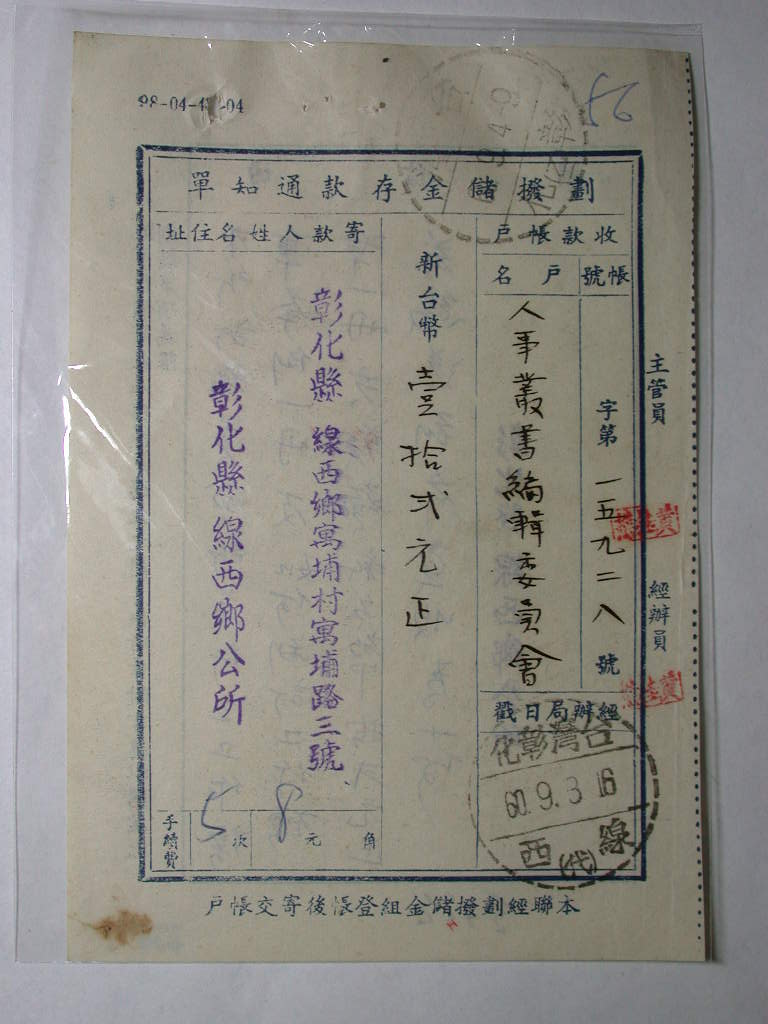 98-04-4 -04
52
劃撥儲金存款通知單
收款帳戶
帳號
戶名
字第一五九二八號
人事叢書編輯委員會
新台幣壹拾弍元正
寄款人姓名住址
彰化縣線西鄉寓埔村寓埔路三號
彰化縣線西鄉公所
經辦局日戳
台灣彰化
60.9.3 16
線西
(代)
手續費
5次
8元
角
主管員
經辦員
本聯經劃撥儲金組登帳後寄交帳戶